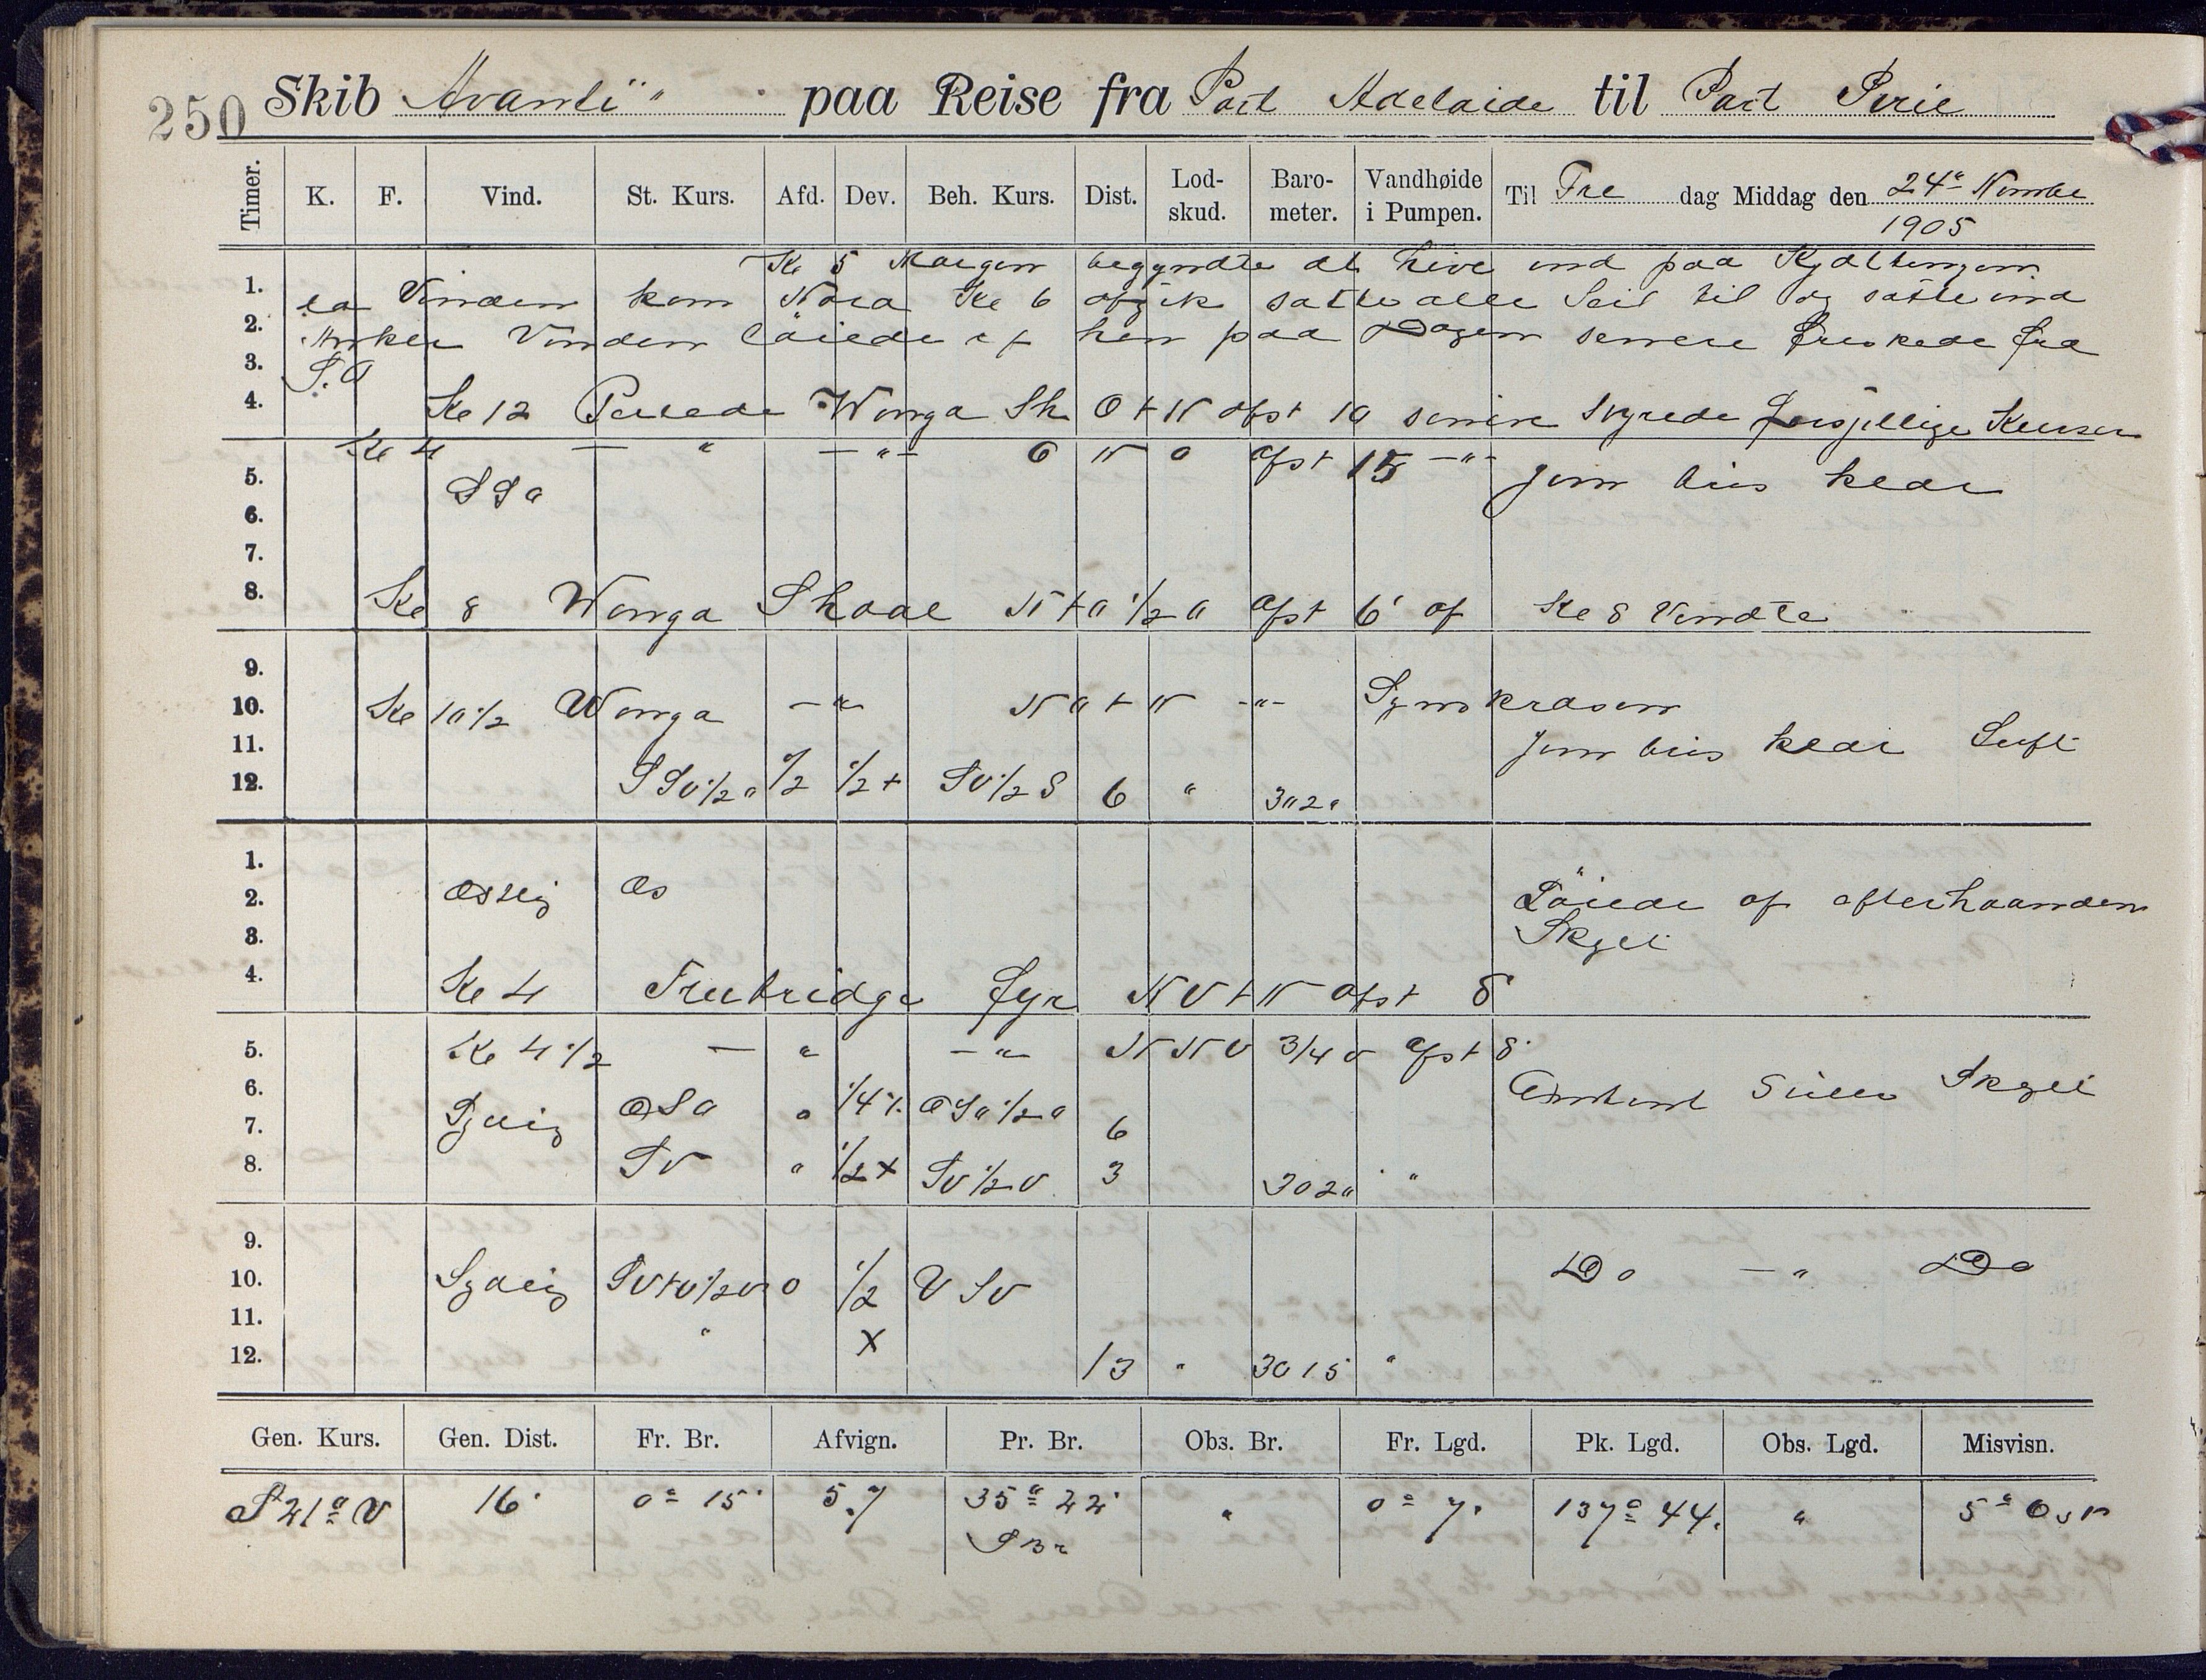 250 Skib Avanti paa Reise fra Port Adelaide til Port Pirie
Timer. K. F. Vind. St. Kurs. Afd. Dev. Beh. Kurs. Dist. Lod-skud. Baro-meter. Vandhøide i Pumpen. Til Fre dag Middag den 24de Novmbe
1905
Kl 5 Morgen begyndte at hive ind paa Kjættingen
1. da Vinden kom Kl 6 afgik satte alle Seil til og satte ind
2. Anker Vinden löiede af hen paa Dagen senere friskede fra
3. S.O
4. Kl 12 Peilede Wonga Sh O t N afst 10 senere Styrede forsjellige Kurser
Kl 4 — " — " — O N O afst 15 — " —
5. SSO Jevn bris klar
6.
7.
8. Kl 8 Wonga Shoal N t O 1/2 O afst 6' of Kl 8 Vendte
9.
10. Kl 10 1/2 Wonga — " N O t N — " —
11. Jevn bris klar Luft
12. SSV 1/2 1/2 + SV 1/2 S 6 " 3020
1.
2. Østlig Øs Löiede af efterhaanden
3. Skyet
4. Kl 4 Trubridge Fyr N V t N afst 8
5. Kl 4 1/2 — " — " N N V 3/4 V afst 8'
6. OSO 0 1/4 OSO 1/2 O Omtrent Stille Skyet
7. Sydlig 6
8. SV " 1/2 + SV 1/2 V 3 3020 "
9.
10. Sydlig SV t V 1/2 V 0 1/2 V SV Do — " Do
11. " X
12. 13 " 3015 "
Gen. Kurs. Gen. Dist. Fr. Br. Afvign. Pr. Br. Obs. Br. Fr. Lgd. Pk. Lgd. Obs. Lgd. Misvisn.
S 21° V 16' 0° 15' 5.7 35° 22' " 0° 7' 137° 44' " 5° Ost
S Br